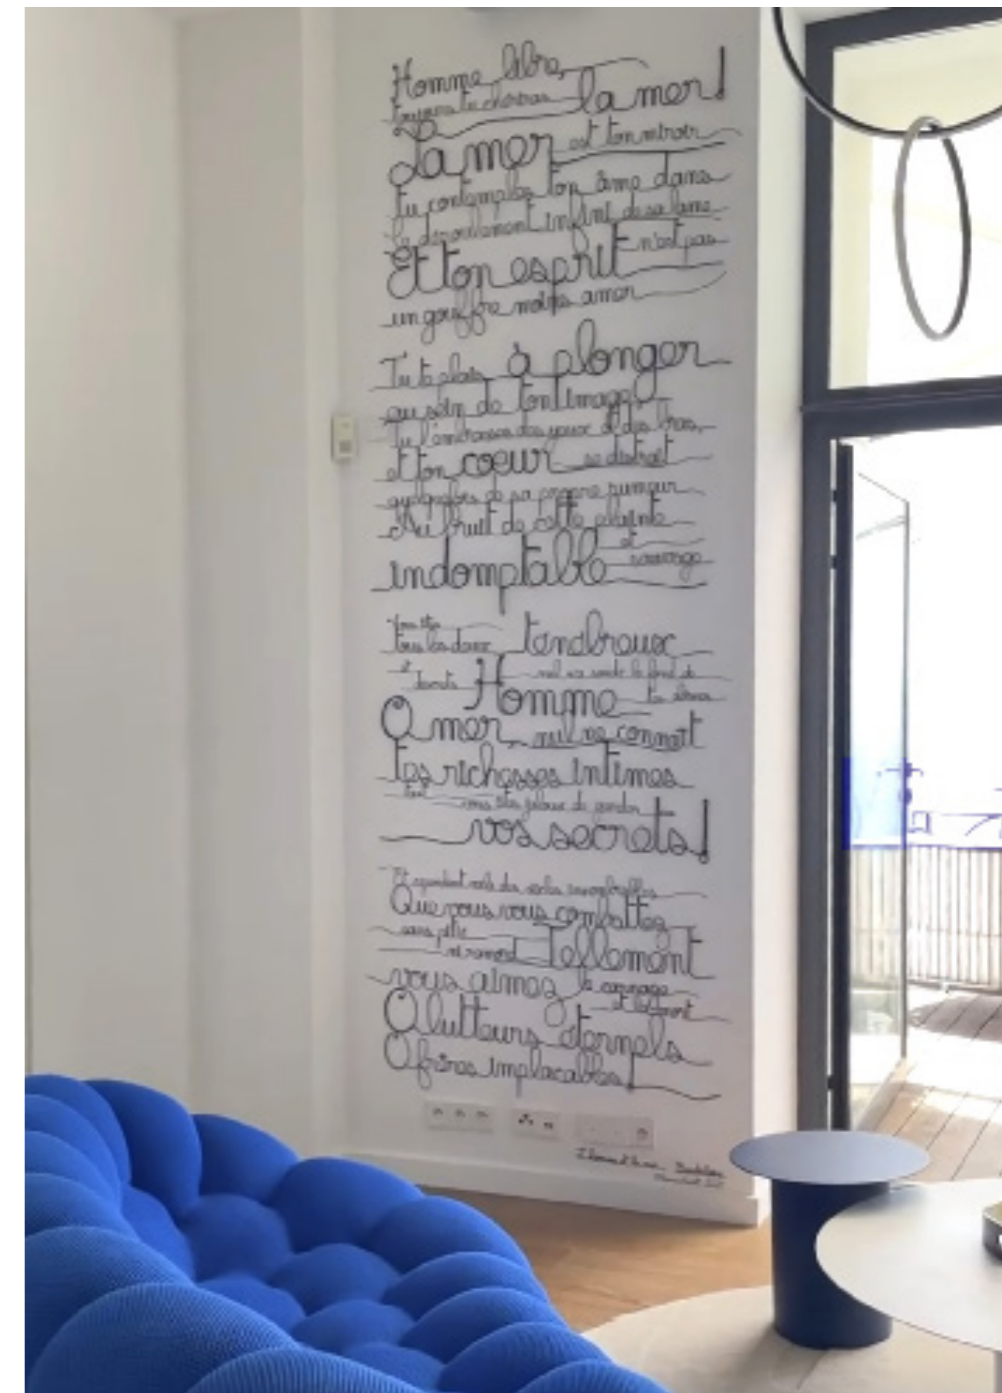 Homme libre,
toujours tu chériras la mer!
La mer est ton miroir
tu contemples ton âme dans
le déroulement infini de sa lame
Et ton esprit n'est pas
un gouffre moins amer
Tu te plais à plonger
au sein de ton image
Tu l'embrasses des yeux et des bras,
et ton coeur se distrait
quelquefois de sa propre rumeur
Au bruit de cette plainte
indomptable et sauvage
Vous êtes
tous les deux ténébreux
et discrets Homme nul n'a sondé le fond de
tes abîmes
O mer, nul ne connaît
tes richesses intimes
tant vous êtes jaloux de garder
vos secrets!
Et cependant voilà des siècles innombrables
Que vous vous combattez
sans pitié
ni remord Tellement
vous aimez le carnage
et la mort
O lutteurs éternels
O frères implacables!
L'homme et la mer, Baudelaire